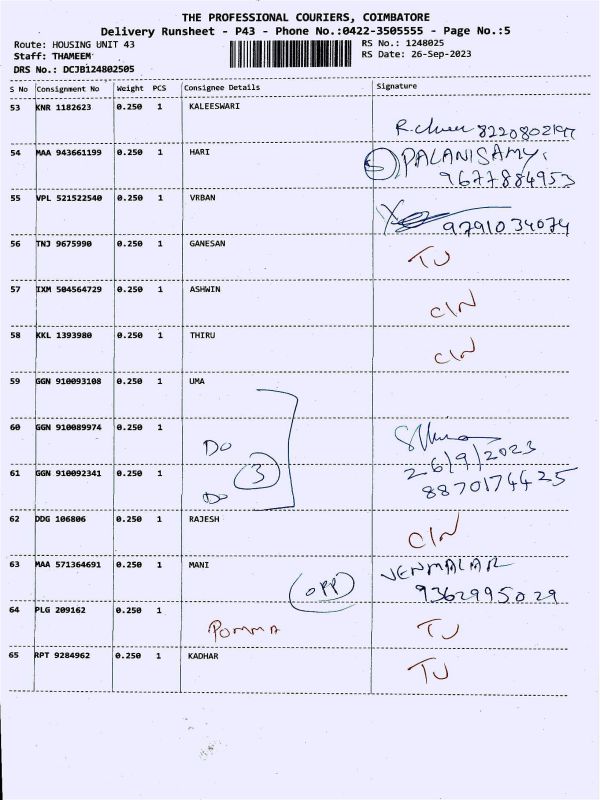 THE PROFESSIONAL COURIERS, COIMBATORE
Delivery Runsheet - P43 - Phone No.:0422-3505555 - Page No.:5
Route: HOUSING UNIT 43 RS No.: 1248025
Staff: THAMEEM RS Date: 26-Sep-2023
DRS No.: DCJB124802505
S No Consignment No Weight PCS Consignee Details Signature
53 KNR 1182623 0.250 1 KALEESWARI
8220802197
54 MAA 943661199 0.250 1 HARI
5 PALANISAMY.
9677884953
55 VPL 521522540 0.250 1 VRBAN
9791034074
56 TNJ 9675990 0.250 1 GANESAN
TU
57 IXM 504564729 0.250 1 ASHWIN
CIN
58 KKL 1393980 0.250 1 THIRU
CIN
59 GGN 910093108 0.250 1 UMA
60 GGN 910089974 0.250 1
Do
3
26/9/2023
61 GGN 910092341 0.250 1
Do
8870174425
62 DDG 106806 0.250 1 RAJESH
CIN
63 MAA 571364691 0.250 1 MANI
VENMALAR
OPP
9362995029
64 PLG 209162 0.250 1
Pomma TU
65 RPT 9284962 0.250 1 KADHAR
TU